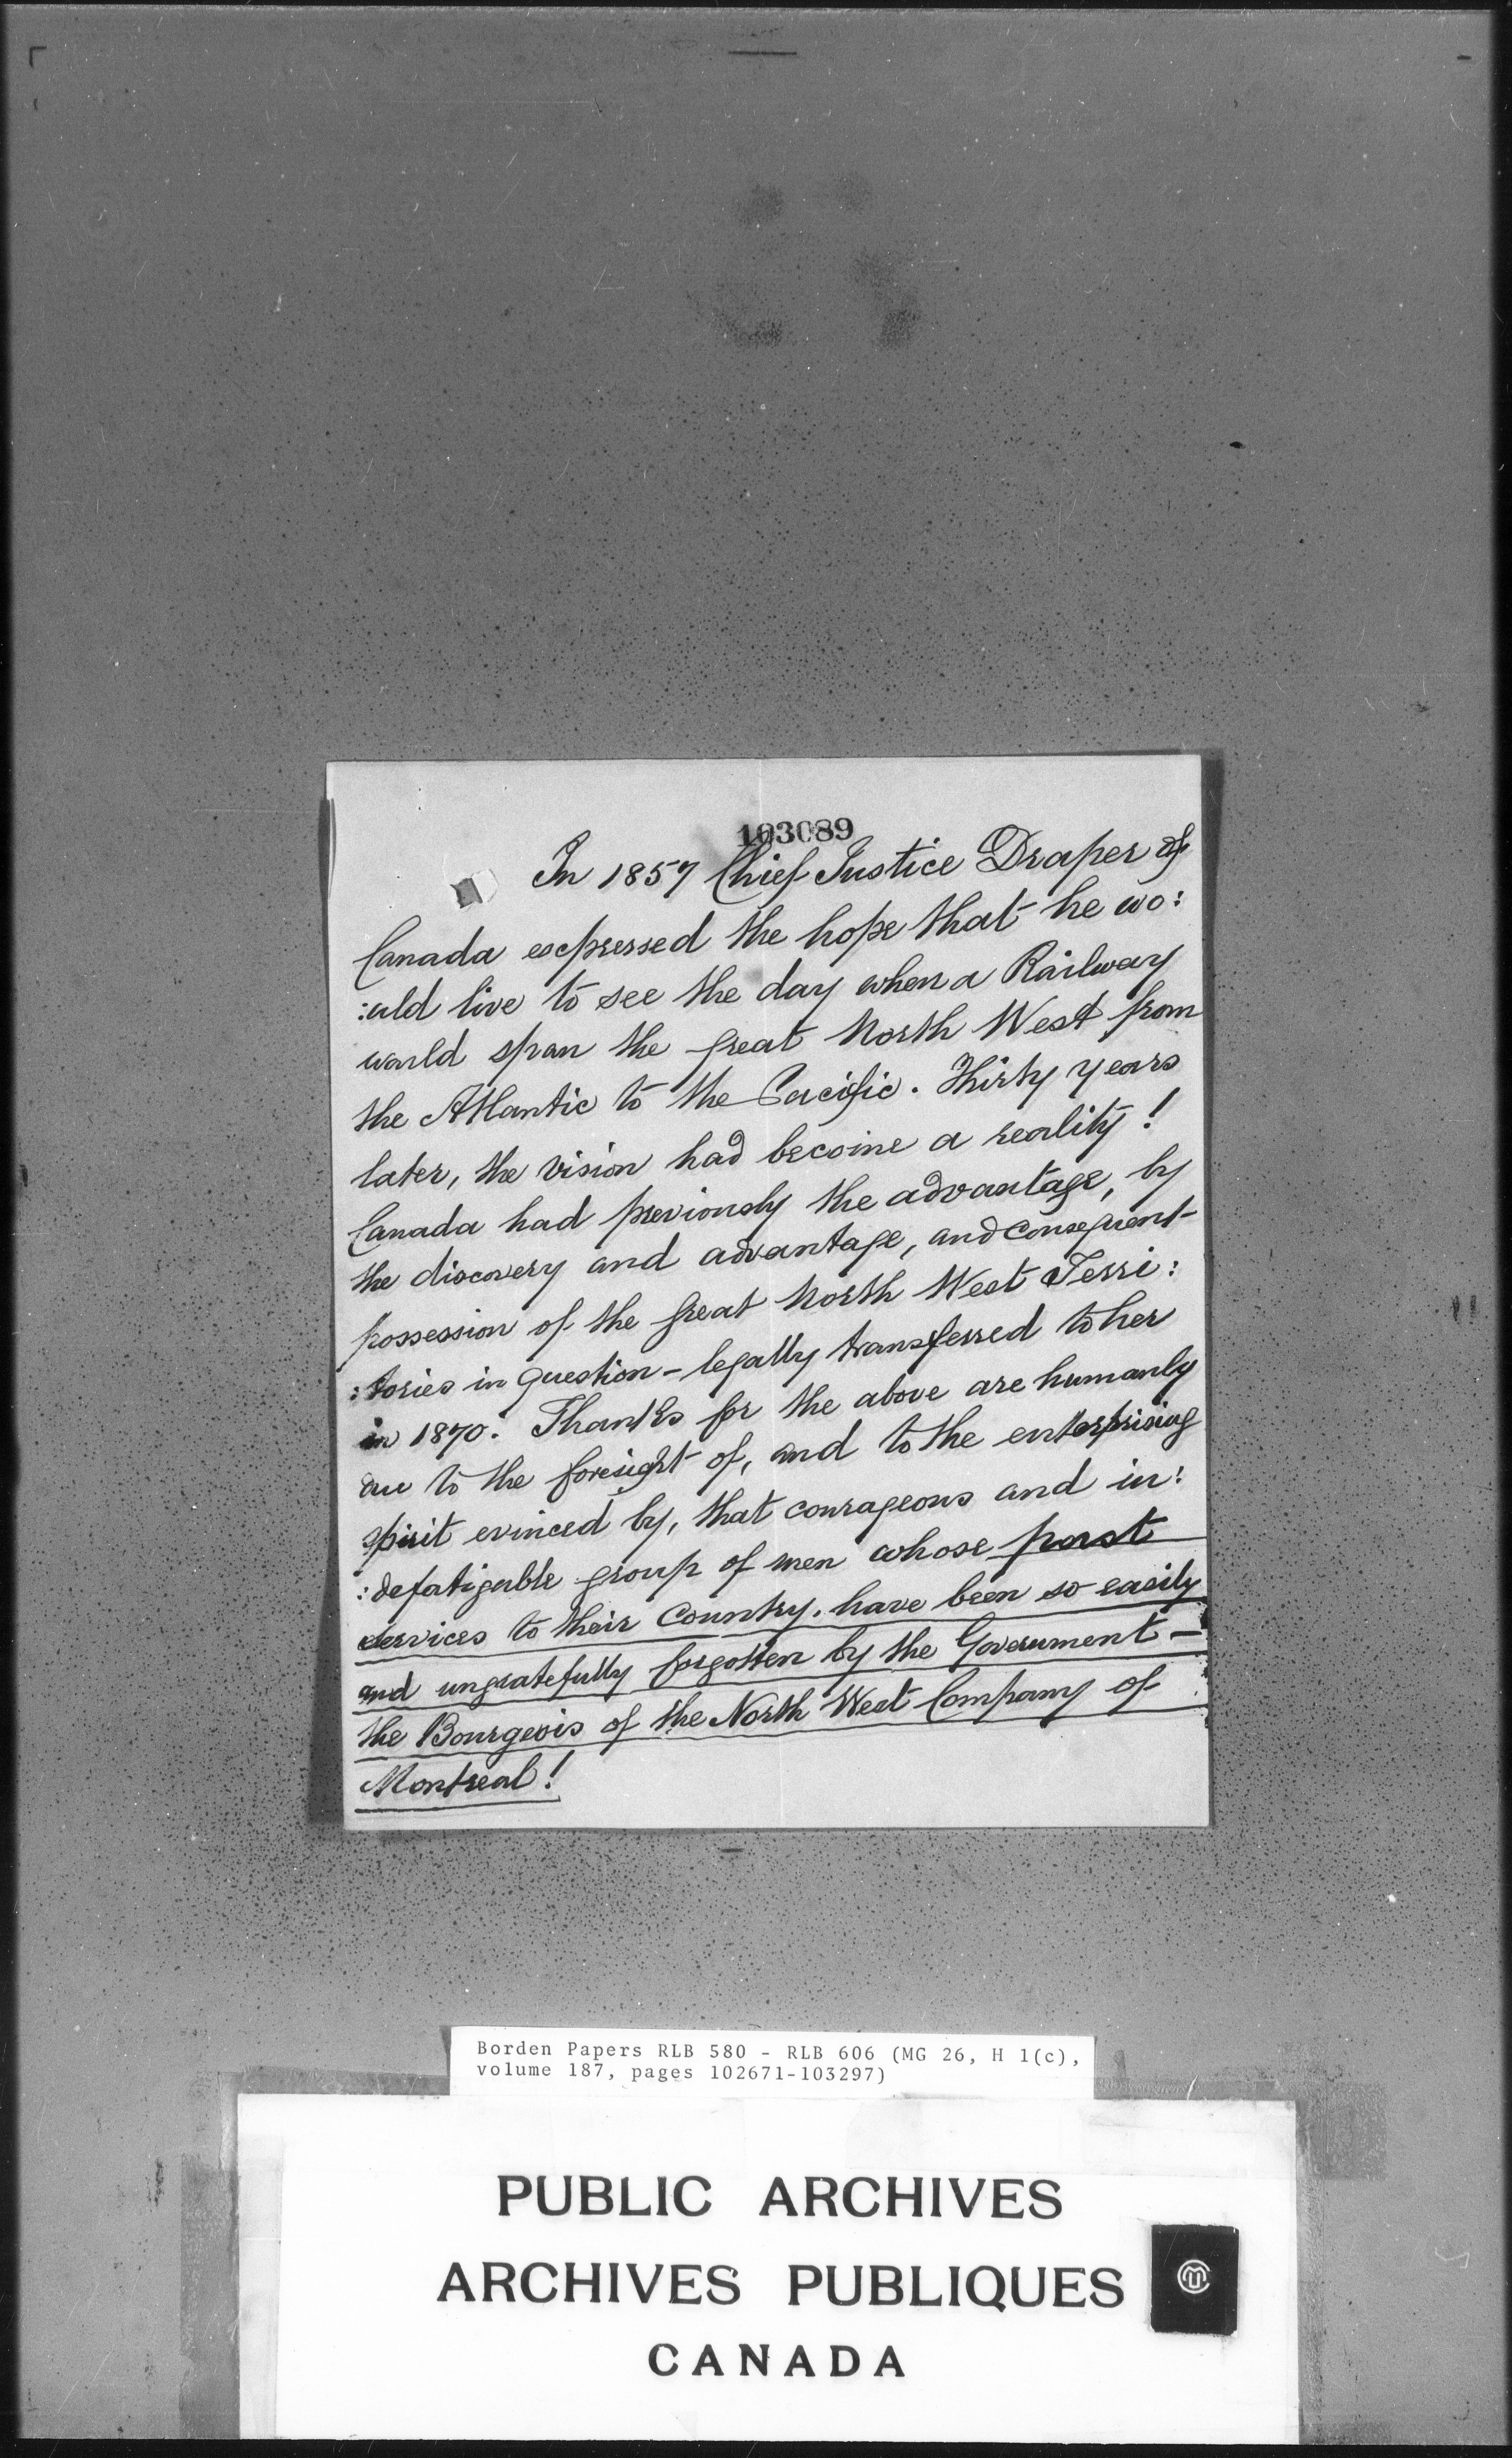 103089
In 1857 Chief Justice Draper of
Canada expressed the hope that he wo:
:uld live to see the day when a Railway
would span the great North West from
the Atlantic to the Pacific. Thirty years
later, the vision had become a reality!
Canada had previously the advantage, by
the discovery and advantage, and consequent
possession of the great North West Terri:
:tories in question - legally transferred to her
in 1870. Thanks for the above are humanly
due to the foresight of, and to the enterprising
spirit evinced by, that courageous and in:
:defatigable group of men whose past
services to their Country, have been so easily
and ungratefully forgotten by the Government -
the Bourgeois of the North West Company of
Montreal!
Borden Papers RLB 580 - RLB 606 (MG 26, H 1(c),
volume 187, pages 102671-103297)
PUBLIC ARCHIVES
ARCHIVES PUBLIQUES
CANADA